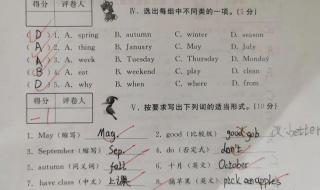 得分 评卷人 Ⅳ. 选出每组中不同类的一项。(5分)
(D) 1. A. spring B. autumn C. winter D. season
(A) 2. A. thing B. January C. May D. July
(A) 3. A. week B. Tuesday C. Thursday D. Monday
(B) 4. A. eat B. weekend C. play D. clean
(D) 5. A. why B. when C. where
得分 评卷人 Ⅴ. 按要求写出下列词的适当形式。(10分)
1. May (缩写) May. 2. good (比较级) better
3. September (缩写) Sep. 4. do (否定式) don't
5. autumn (同义词) fall 6. 十月 (英文) October
7. have class (中文) 上课 8. 摘苹果 (英文) pick apples